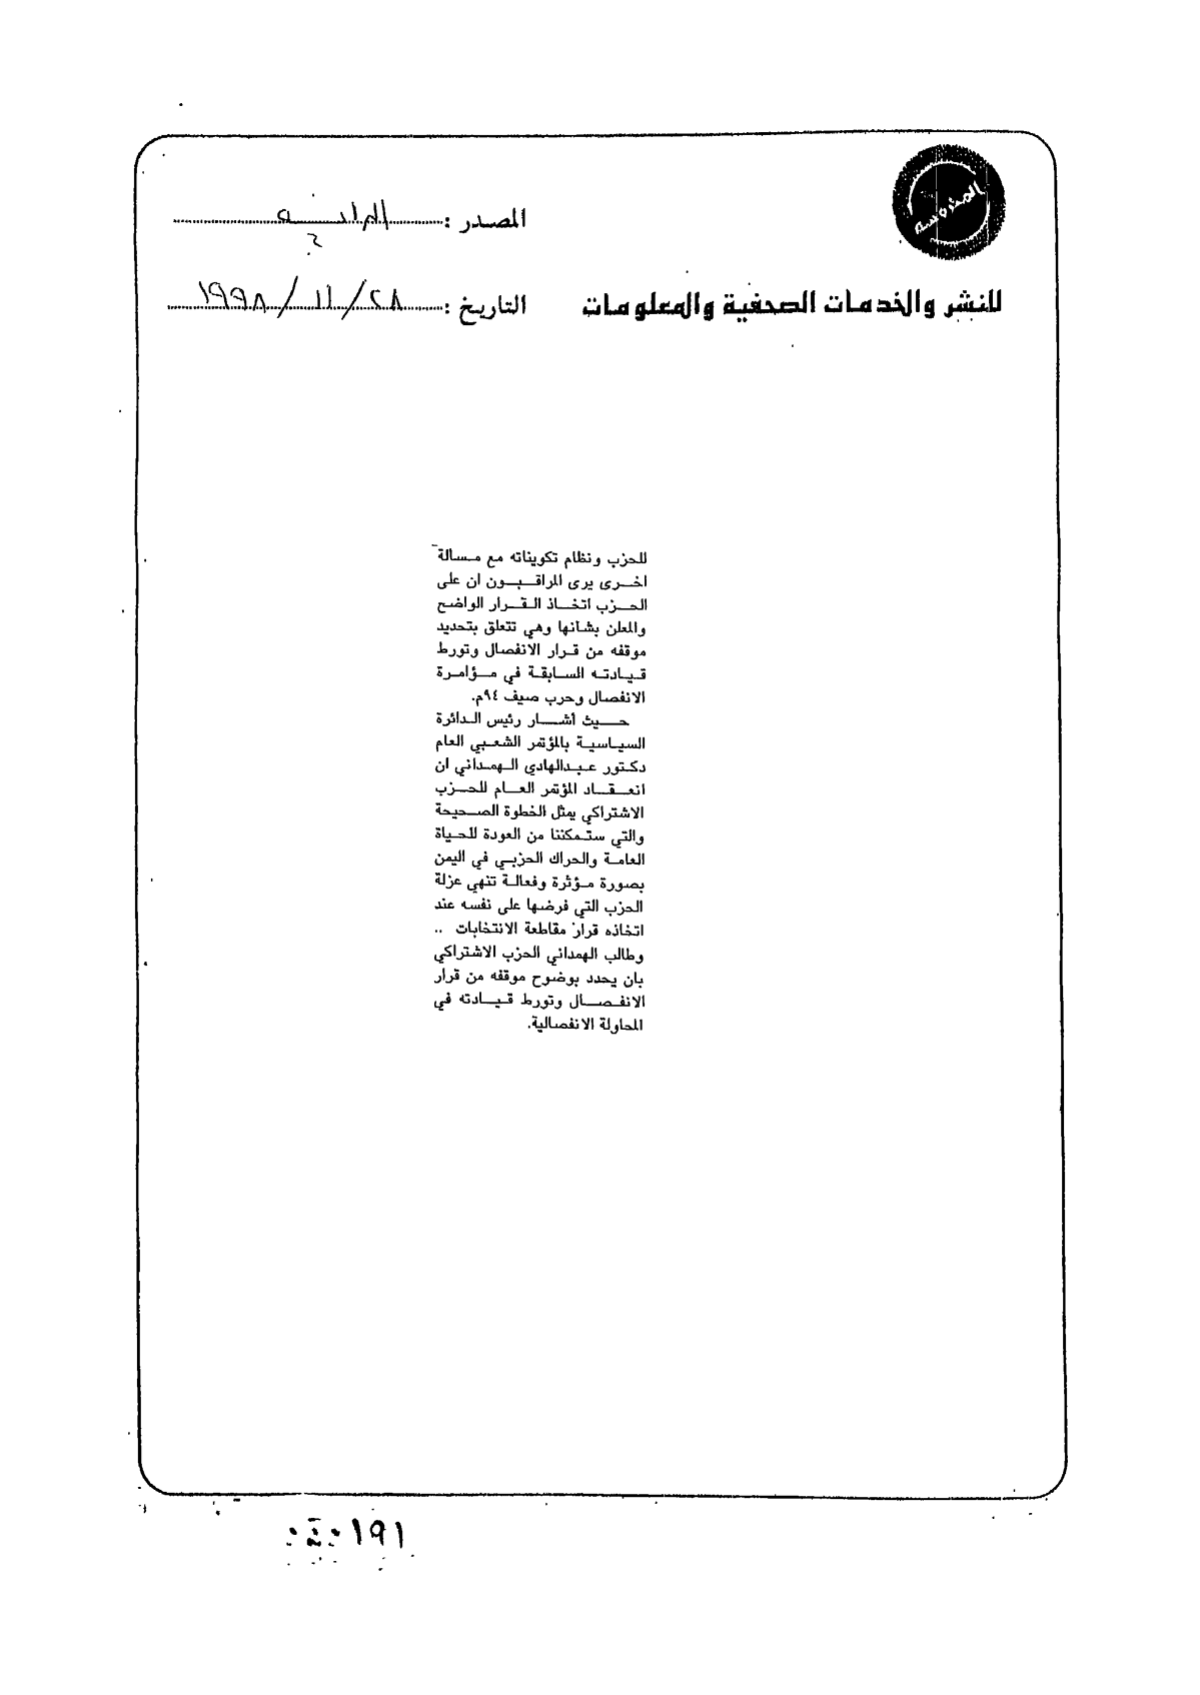 المحروسة
المصدر :
للنشر والخدمات الصحفية والمعلومات
التاريخ : ٢٨ / ١١ / ١٩٩٨
للحزب ونظام تكويناته مع مسالة
اخرى يرى المراقبون ان على
الحزب اتخاذ القرار الواضح
والمعلن بشانها وهي تتعلق بتحديد
موقفه من قرار الانفصال وتورط
قيادته السابقة في مؤامرة
الانفصال وحرب صيف ٩٤م.
حيث أشار رئيس الدائرة
السياسية بالمؤتمر الشعبي العام
دكتور عبدالهادي الهمداني ان
انعقاد المؤتمر العام للحزب
الاشتراكي يمثل الخطوة الصحيحة
والتي ستمكننا من العودة للحياة
العامة والحراك الحزبي في اليمن
بصورة مؤثرة وفعالة تنهي عزلة
الحزب التي فرضها على نفسه عند
اتخاذه قرار مقاطعة الانتخابات ..
وطالب الهمداني الحزب الاشتراكي
بان يحدد بوضوح موقفه من قرار
الانفصال وتورط قيادته في
المحاولة الانفصالية.
١٩١